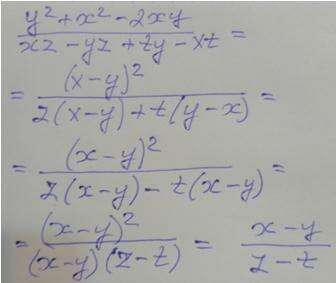 (y² + x² - 2xy)/(xz - yz + ty - xt) =
= (x-y)²/(z(x-y) + t(y-x)) =
= (x-y)²/(z(x-y) - t(x-y)) =
= (x-y)²/((x-y)(z-t)) = (x-y)/(z-t)